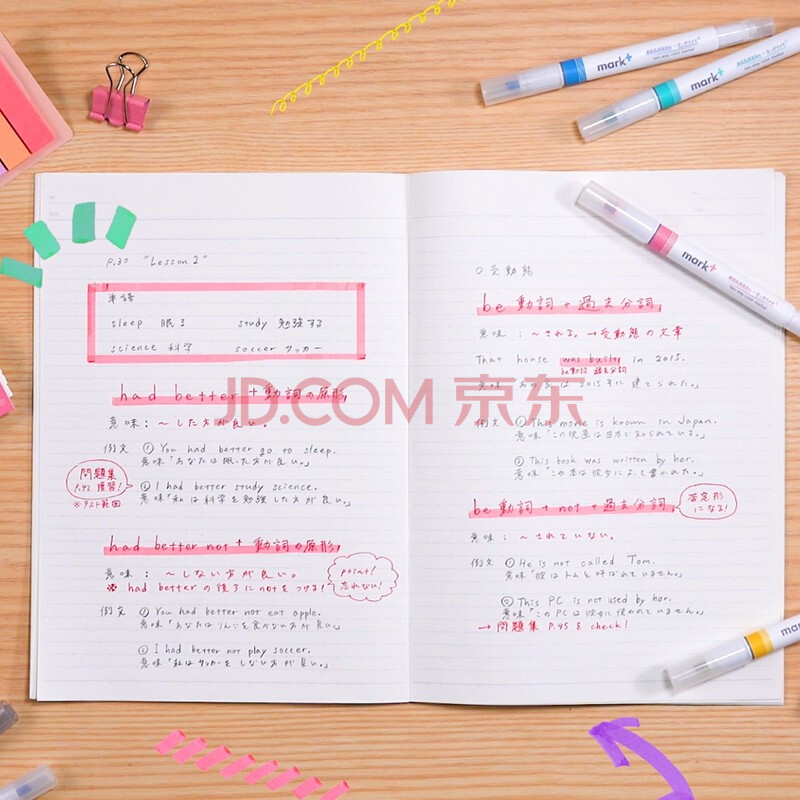 P.30 "Lesson 2"
単語
sleep 眠る study 勉強する
science 科学 soccer サッカー
had better + 動詞の原形
意味: 〜した方が良い。
例文 ① You had better go to sleep.
意味「あなたは眠った方が良い。」
② I had better study science.
意味「私は科学を勉強した方が良い。」
問題集
P.42 復習!
※テスト範囲
had better not + 動詞の原形
意味: 〜しない方が良い。
※ had betterの後ろにnotをつける!
point!
忘れない!
例文 ① You had better not eat apple.
意味「あなたはりんごを食べない方が良い。」
② I had better not play soccer.
意味「私はサッカーをしない方が良い。」
○ 受動態
be 動詞 + 過去分詞
意味: 〜される。→受動態の文章
That house was built in 2015.
be動詞 過去分詞
意味「あの家は2015年に建てられた。」
例文 ① This movie is known in Japan.
意味「この映画は日本で知られている。」
② This book was written by her.
意味「この本は彼女によって書かれた。」
be 動詞 + not + 過去分詞
否定形
になる!
意味: 〜されていない。
例文 ① He is not called Tom.
意味「彼はトムと呼ばれていません。」
② This PC is not used by her.
意味「このPCは彼女に使われていません。」
→ 問題集 P.45をcheck!
mark+
mark+
mark+
mark+
JD.COM 京东